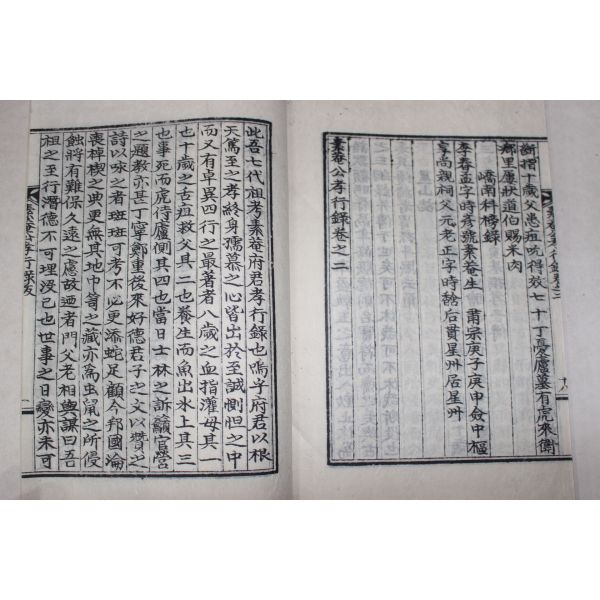 斷指十歲父患疽吮得效七十丁憂廬墓有虎來衛
鄕里屢狀道伯賜米肉
嶠南科榜錄
李春孟字時彥號素菴生
肅宗庚子庚申僉中樞
享尙親祠父元老正字時馠后貫星州居星州
素菴公孝行錄卷之二
此吾七代祖考素菴府君孝行錄也嗚乎府君以根
天篤至之孝終身孺慕之心皆出於至誠惻怛之中
而又有卓異四行之最著者八歲之血指灌母其一
也十歲之舌疽救父其二也養生而魚出氷上其三
也事死而虎待廬側其四也當日士林之訴籲官營
之題敎亦甚丁寧鄭重後來好德君子之文以讚之
詩以咏之者斑斑可考不必更添蛇足顧今邦國淪
喪棹楔之典更無其地巾箱之藏亦爲虫鼠之所侵
蝕將有難保久遠之慮故迺者門父老相與謀曰吾
祖之至行潛德不可埋沒已也世事之日變亦未可